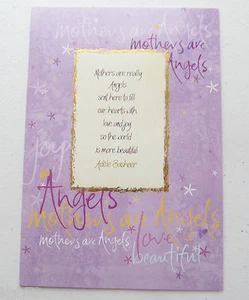 mothers are
Angels
Mothers are really
Angels
sent here to fill
our hearts with
love and joy
so the world
is more beautiful
joy
Angels
mothers are Angels
mothers are Angels
love
beautiful